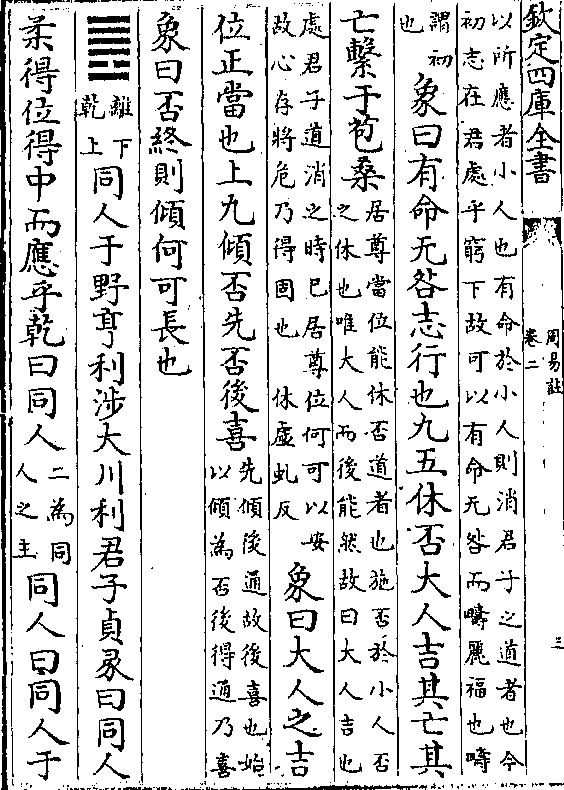 欽定四庫全書
周易註
卷二
三
以所應者小人也有命於小人則消君子之道者也今
初志在君處乎窮下故可以有命无咎而疇麗福也疇
謂初
也
象曰有命无咎志行也九五休否大人吉其亡其
亡繫于苞桑
居尊當位能休否道者也施否於小人否
之休也唯大人而後能然故曰大人吉也
處君子道消之時已居尊位何可以安
故心存將危乃得固也 休虛虬反
象曰大人之吉
位正當也上九傾否先否後喜
先傾後通故後喜也始
以傾為否後得通乃喜
象曰否終則傾何可長也
䷌
離下
乾上
同人于野亨利涉大川利君子貞彖曰同人
柔得位得中而應乎乾曰同人
二為同
人之主
同人曰同人于